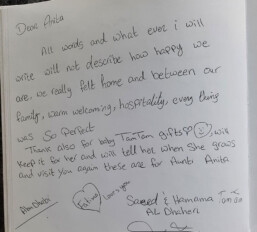 Dear Anita
All words and what ever i will
write will not describe how happy we
are, we really felt home and between our
family, warm welcoming, hospitality, every thing
was So Perfect
Thank also for baby TamTam gifts will
keep it for her and will tell her when she grows
and visit you again these are for Aunti Anita
Love you
Saeed & Hamama
AL Dhaheri